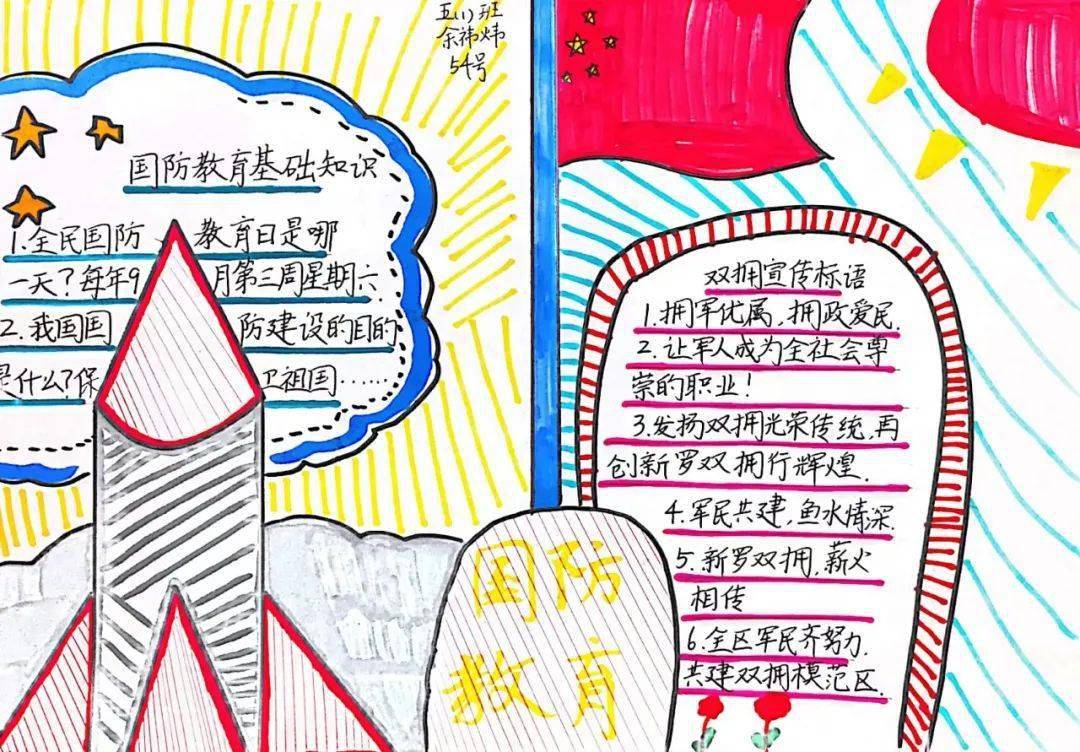 五(1)班
余祎炜
54号
国防教育基础知识
1.全民国防教育日是哪
一天?每年9月第三周星期六.
2.我国国防建设的目的
是什么?保卫祖国……
国防
教育
双拥宣传标语
1.拥军优属,拥政爱民.
2.让军人成为全社会尊
崇的职业!
3.发扬双拥光荣传统,再
创新罗双拥行辉煌.
4.军民共建,鱼水情深.
5.新罗双拥,薪火
相传
6.全区军民齐努力.
共建双拥模范区.